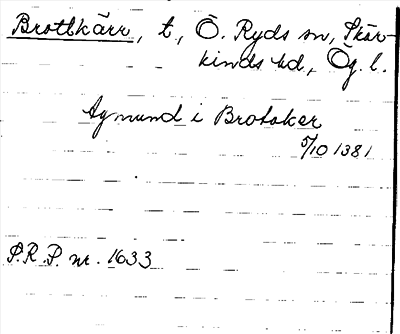 Brottkärr, t., Ö. Ryds sn, Skär-
kinds hd, Ög. l.
Agmund i Brotaker
5/10 1381
S.R.P. nr. 1633